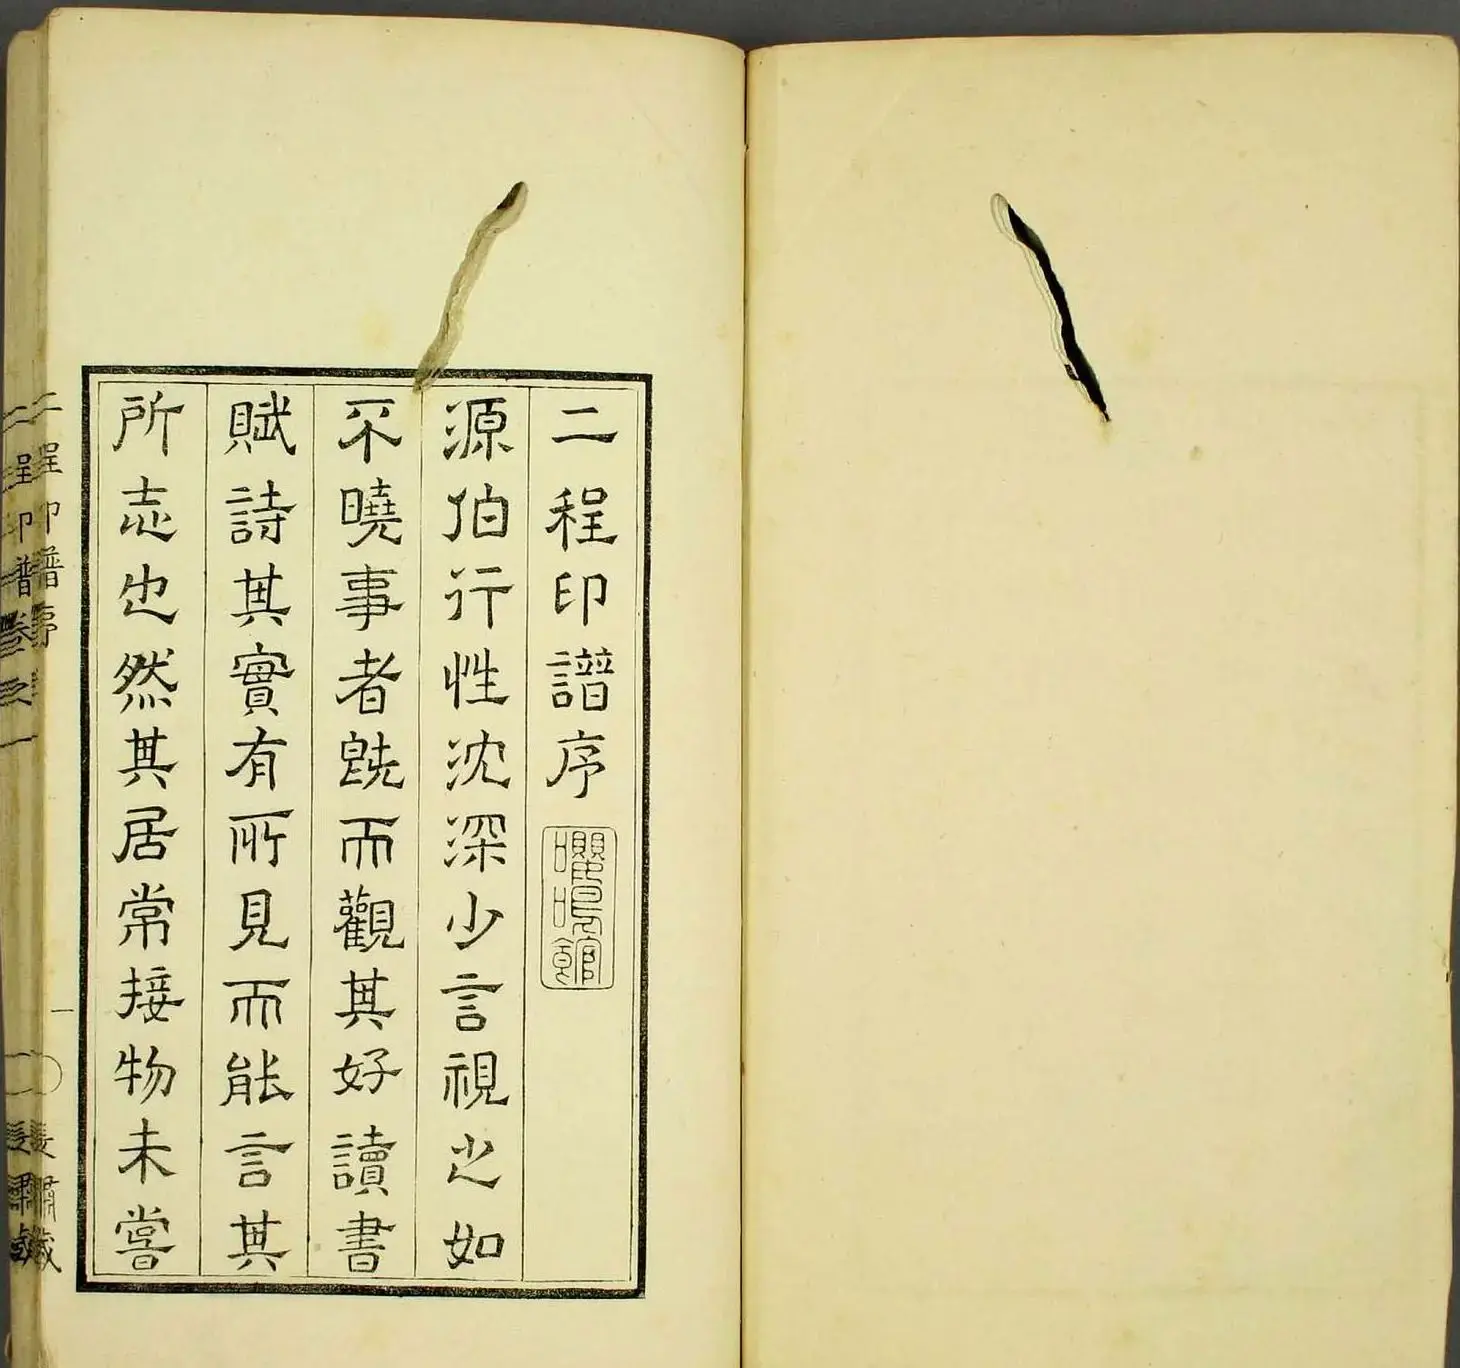 二程印譜序
嚶鳴館
源伯行性沈深少言視之如
不曉事者旣而觀其好讀書
賦詩其實有所見而能言其
所志也然其居常接物未嘗
二程印譜序
一
二程印譜卷之一